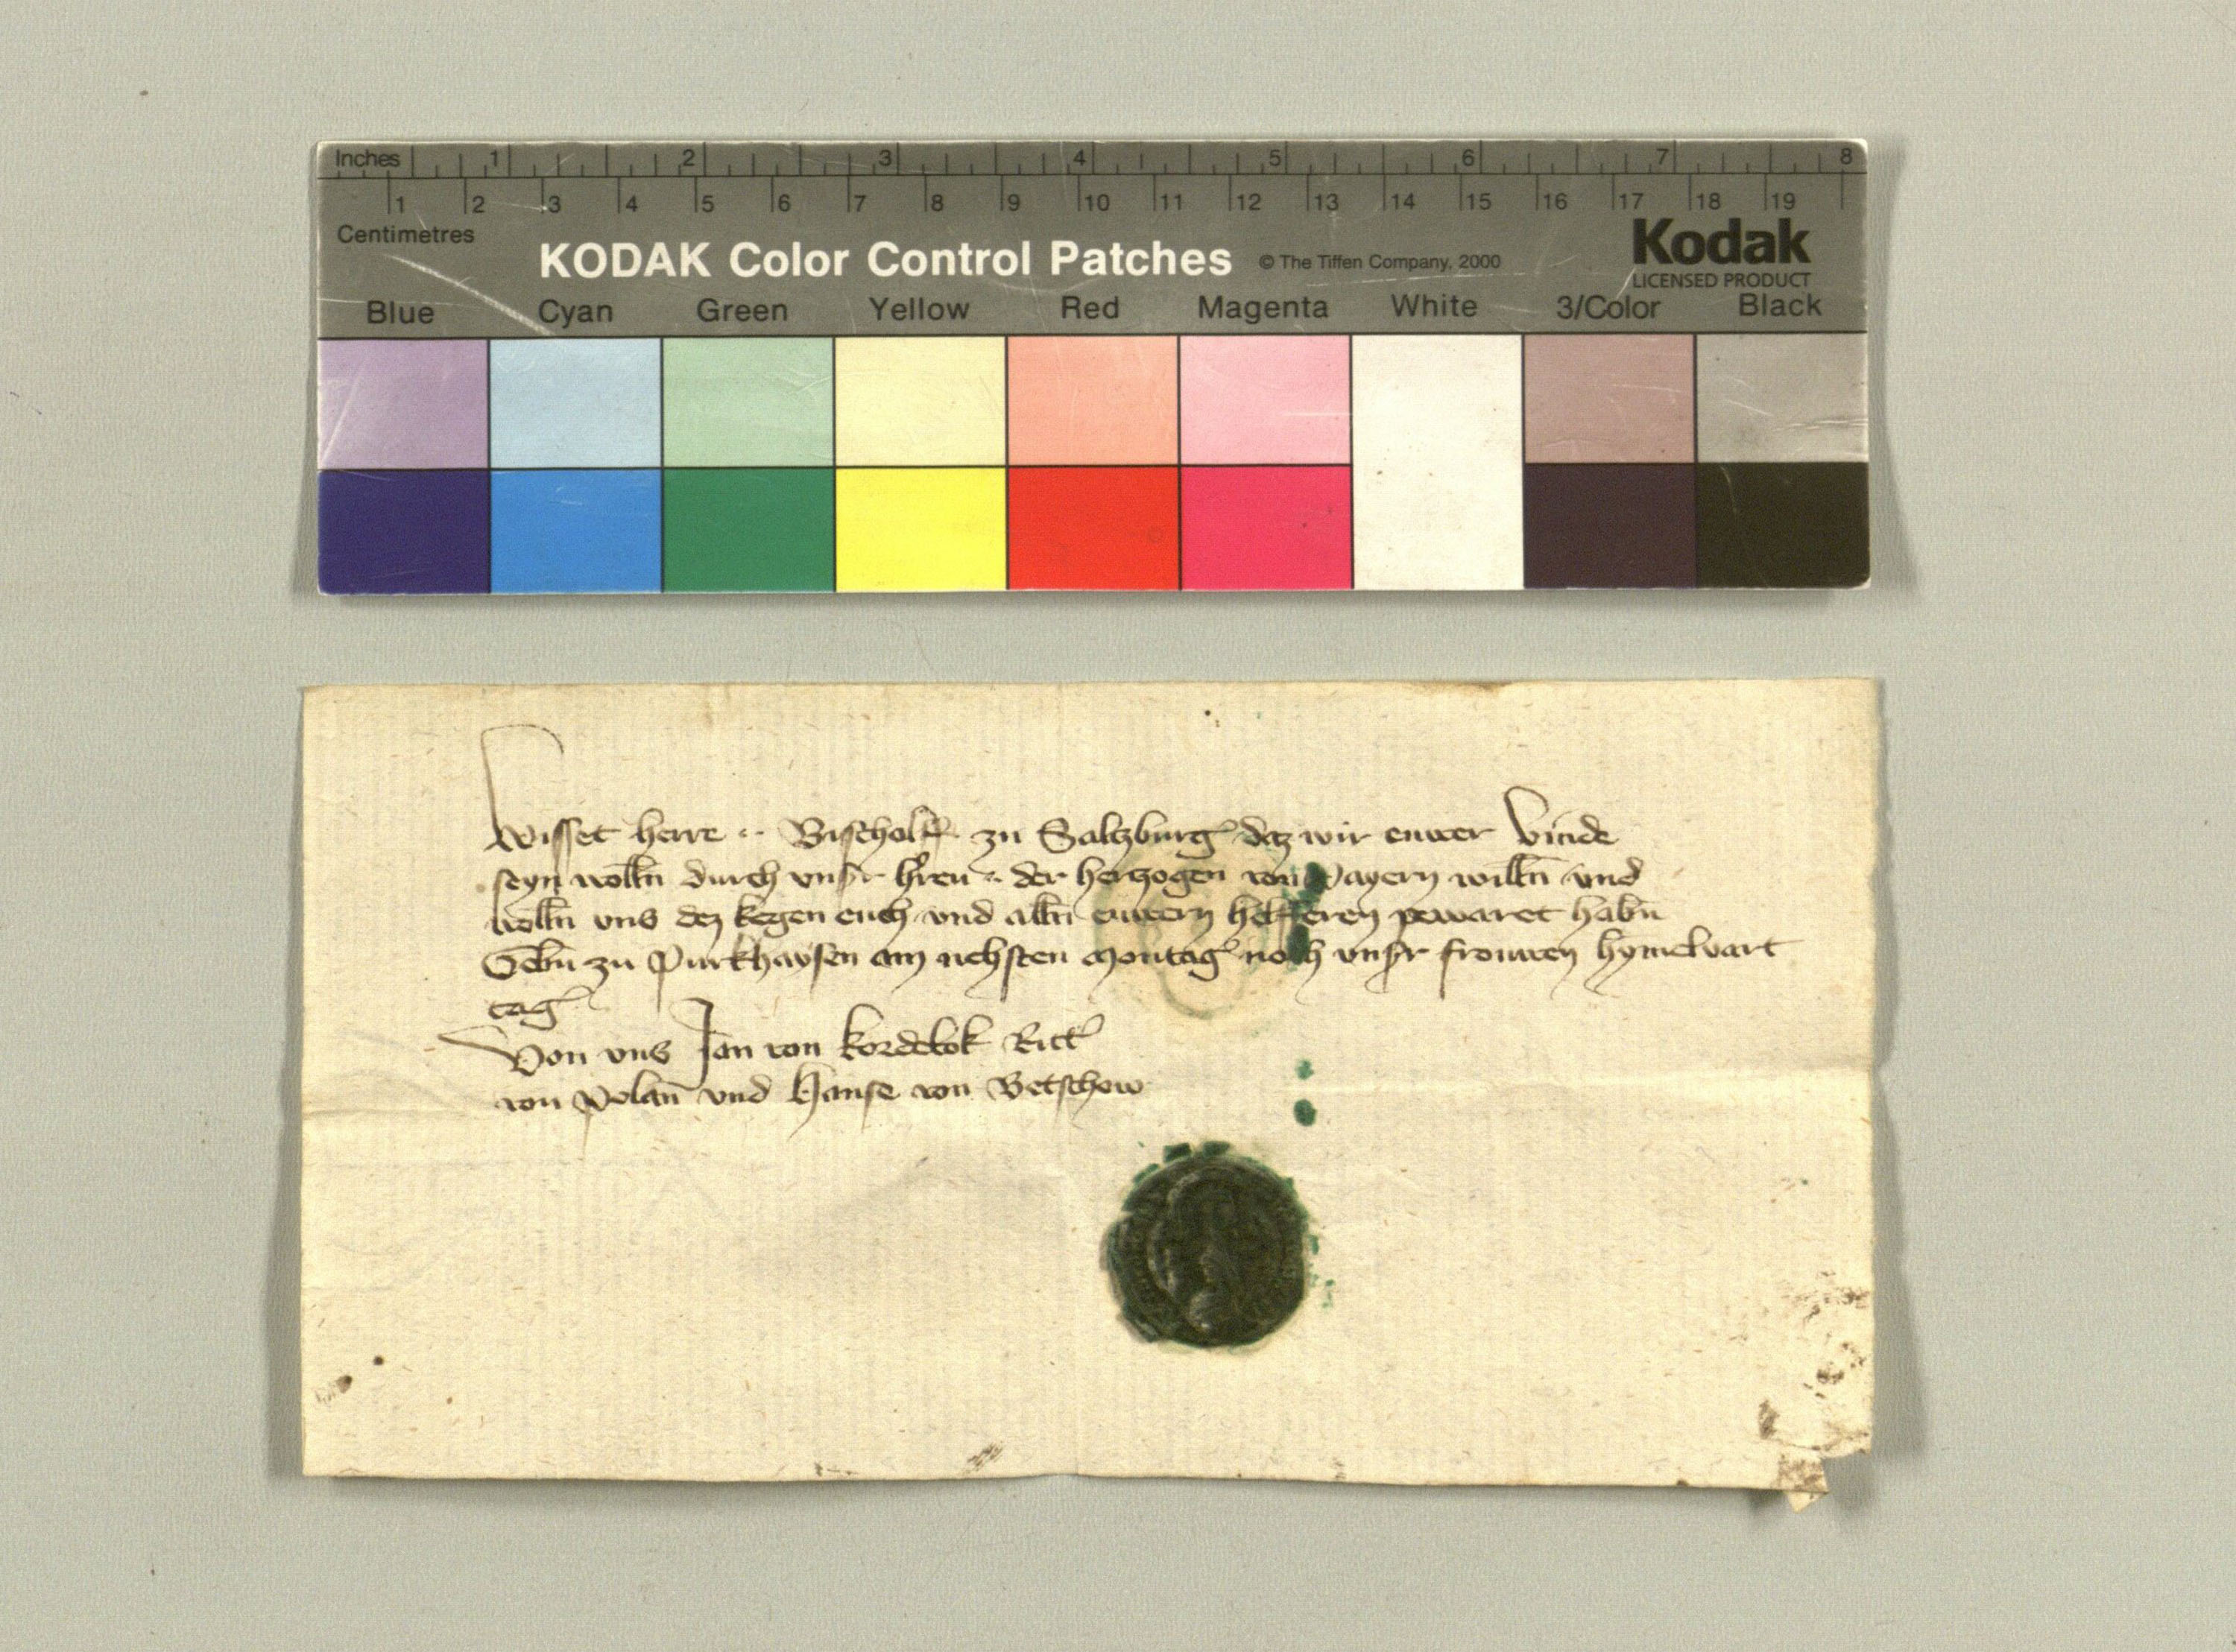 Inches 1 2 3 4 5 6 7 8
1 2 3 4 5 6 7 8 9 10 11 12 13 14 15 16 17 18 19
Centimetres
KODAK Color Control Patches © The Tiffen Company, 2000 Kodak
LICENSED PRODUCT
Blue Cyan Green Yellow Red Magenta White 3/Color Black
Wisset herre .. Bischolff zu Saltzburg daz wir euwer vinde
seyn wolln̄ durch vnsʼr hʼren .. der hertzogen von Payern willn̄ vnd
wolln̄ vns dez kegen euch vnd alln̄ euwern helfferen pewaret habn̄
Gebn̄ zu Purkhaysen am nehsten Montag noch vnsʼr frouwen hymelvart
tag
Von vns Jan von kordebok Rittʼ
von Polan̄ vnd Hanse von Betschow